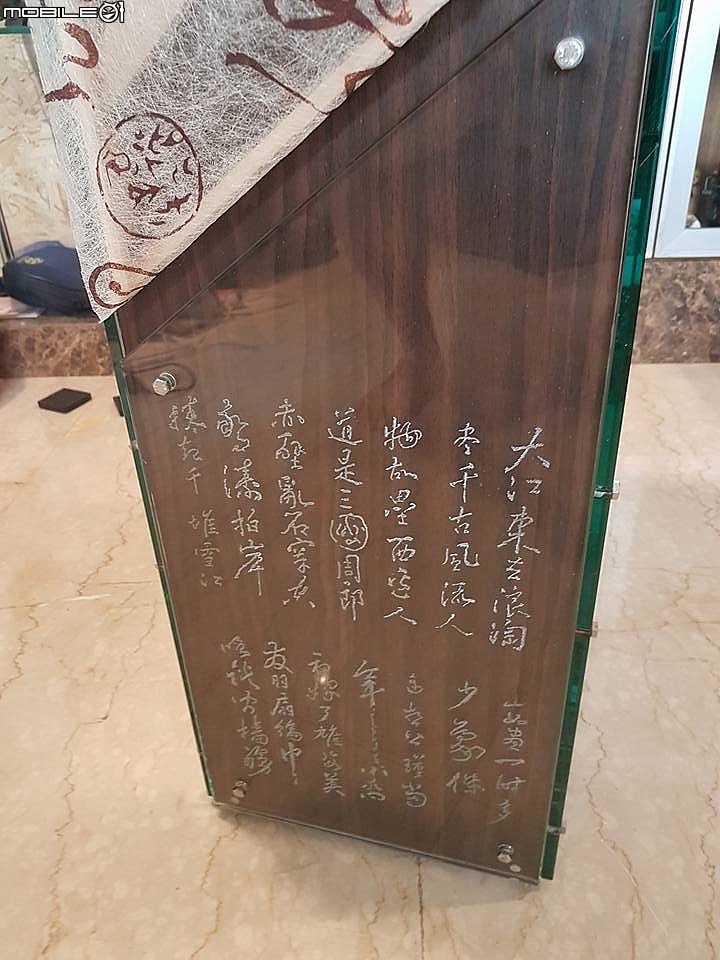 MOBILE01
大江東去浪淘
盡千古風流人
物故壘西邊人
道是三國周郎
赤壁亂石穿空
驚濤拍岸
捲起千堆雪江
如畫一時多
少豪傑
遙想公瑾當
年小喬
初嫁了雄姿英
發羽扇綸巾
談笑間檣櫓